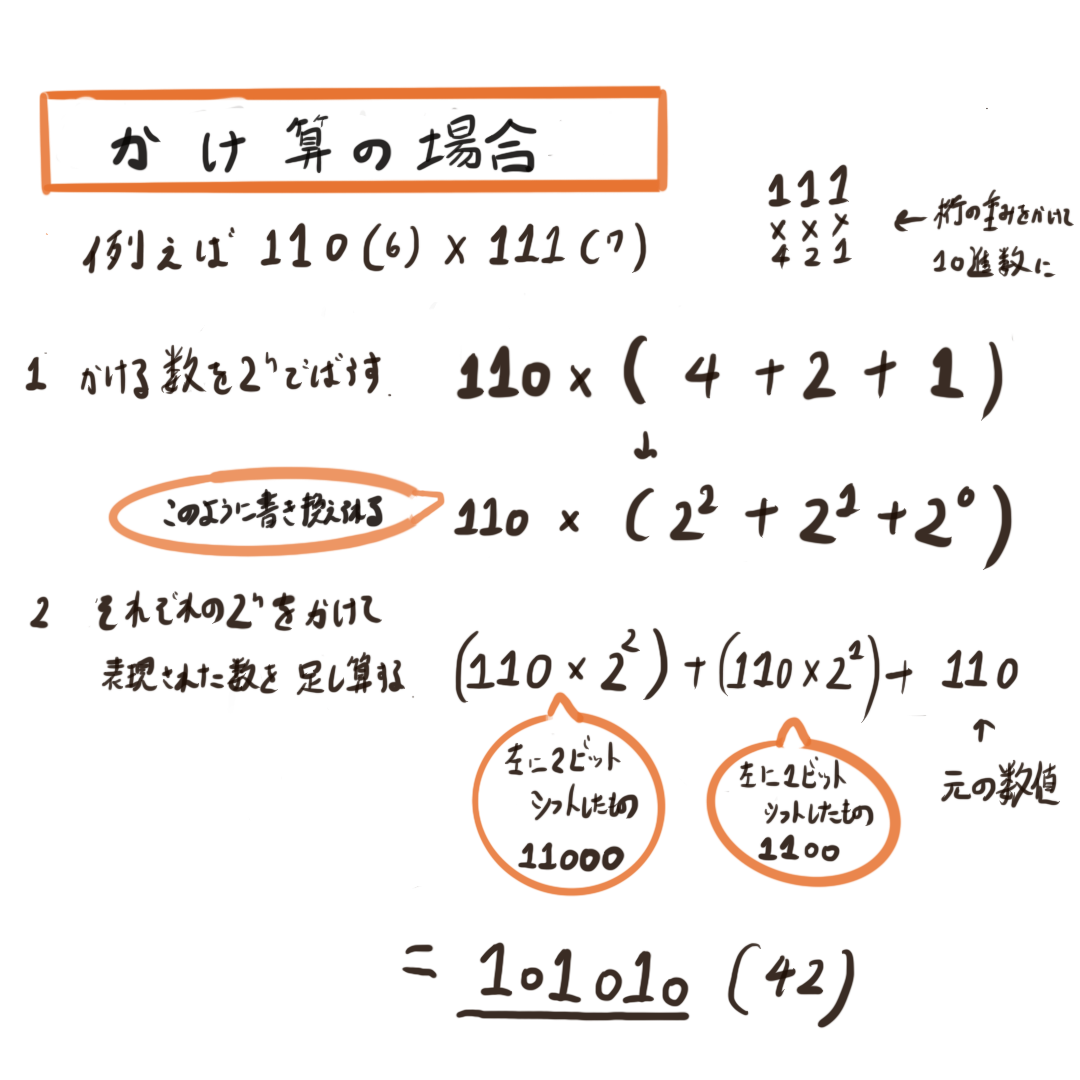 かけ算の場合
例えば 110(6) × 111(7)
111
×××
421
← 桁の重みをかけて
10進数に
1 かける数を2ⁿでばらす
110 × ( 4 + 2 + 1 )
↓
このように書き換えられる
110 × ( 2² + 2¹ + 2⁰ )
2 それぞれの2ⁿをかけて
表現された数を 足し算する
(110 × 2²) + (110 × 2¹) + 110
左に2ビット
シフトしたもの
11000
左に1ビット
シフトしたもの
1100
↑
元の数値
= 101010 (42)